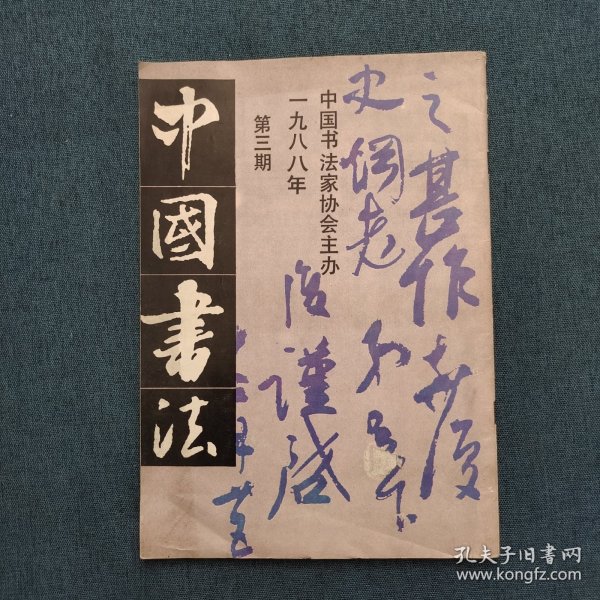 中國書法
中国书法家协会主办
一九八八年
第三期
之甚作
謹啓
孔夫子旧书网
www.kongfz.com